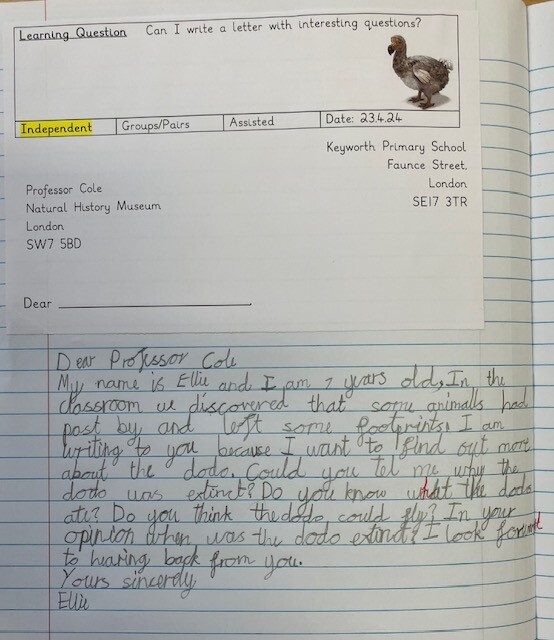 Learning Question Can I write a letter with interesting questions?
Independent Groups/Pairs Assisted Date: 23.4.24
Keyworth Primary School
Faunce Street,
London
SE17 3TR
Professor Cole
Natural History Museum
London
SW7 5BD
Dear
Dear Professor Cole
My name is Ellie and I am 7 years old, In the
classroom we discovered that some animalls had
past by and left some footprints, I am
writing to you because I want to find out more
about the dodo. Could you tel me why the
dodo was extinct? Do you know what the dodo
ate? Do you think the dodo could fly? In your
opinion when was the dodo extinct? I look forward
to hearing back from you.
Yours sincerely
Ellie